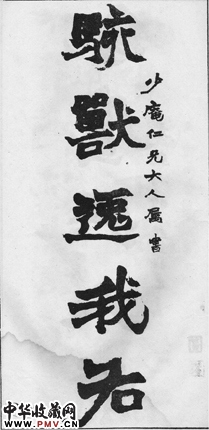 少庵仁兄大人属書
駭獸逸我右
中华收藏网
WWW.PMV.CN